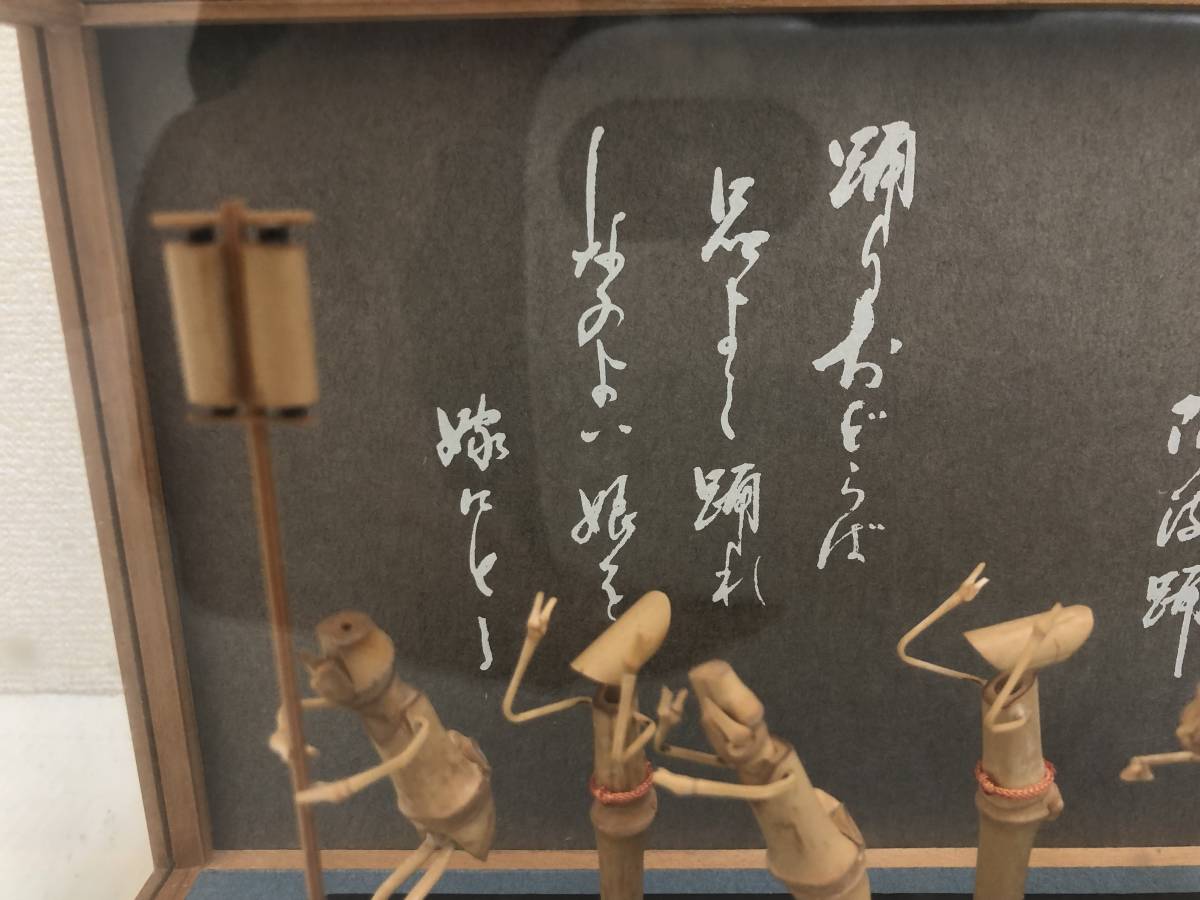 阿波踊
踊りおどらば
品よく踊れ
しなのよい娘を
嫁にとる